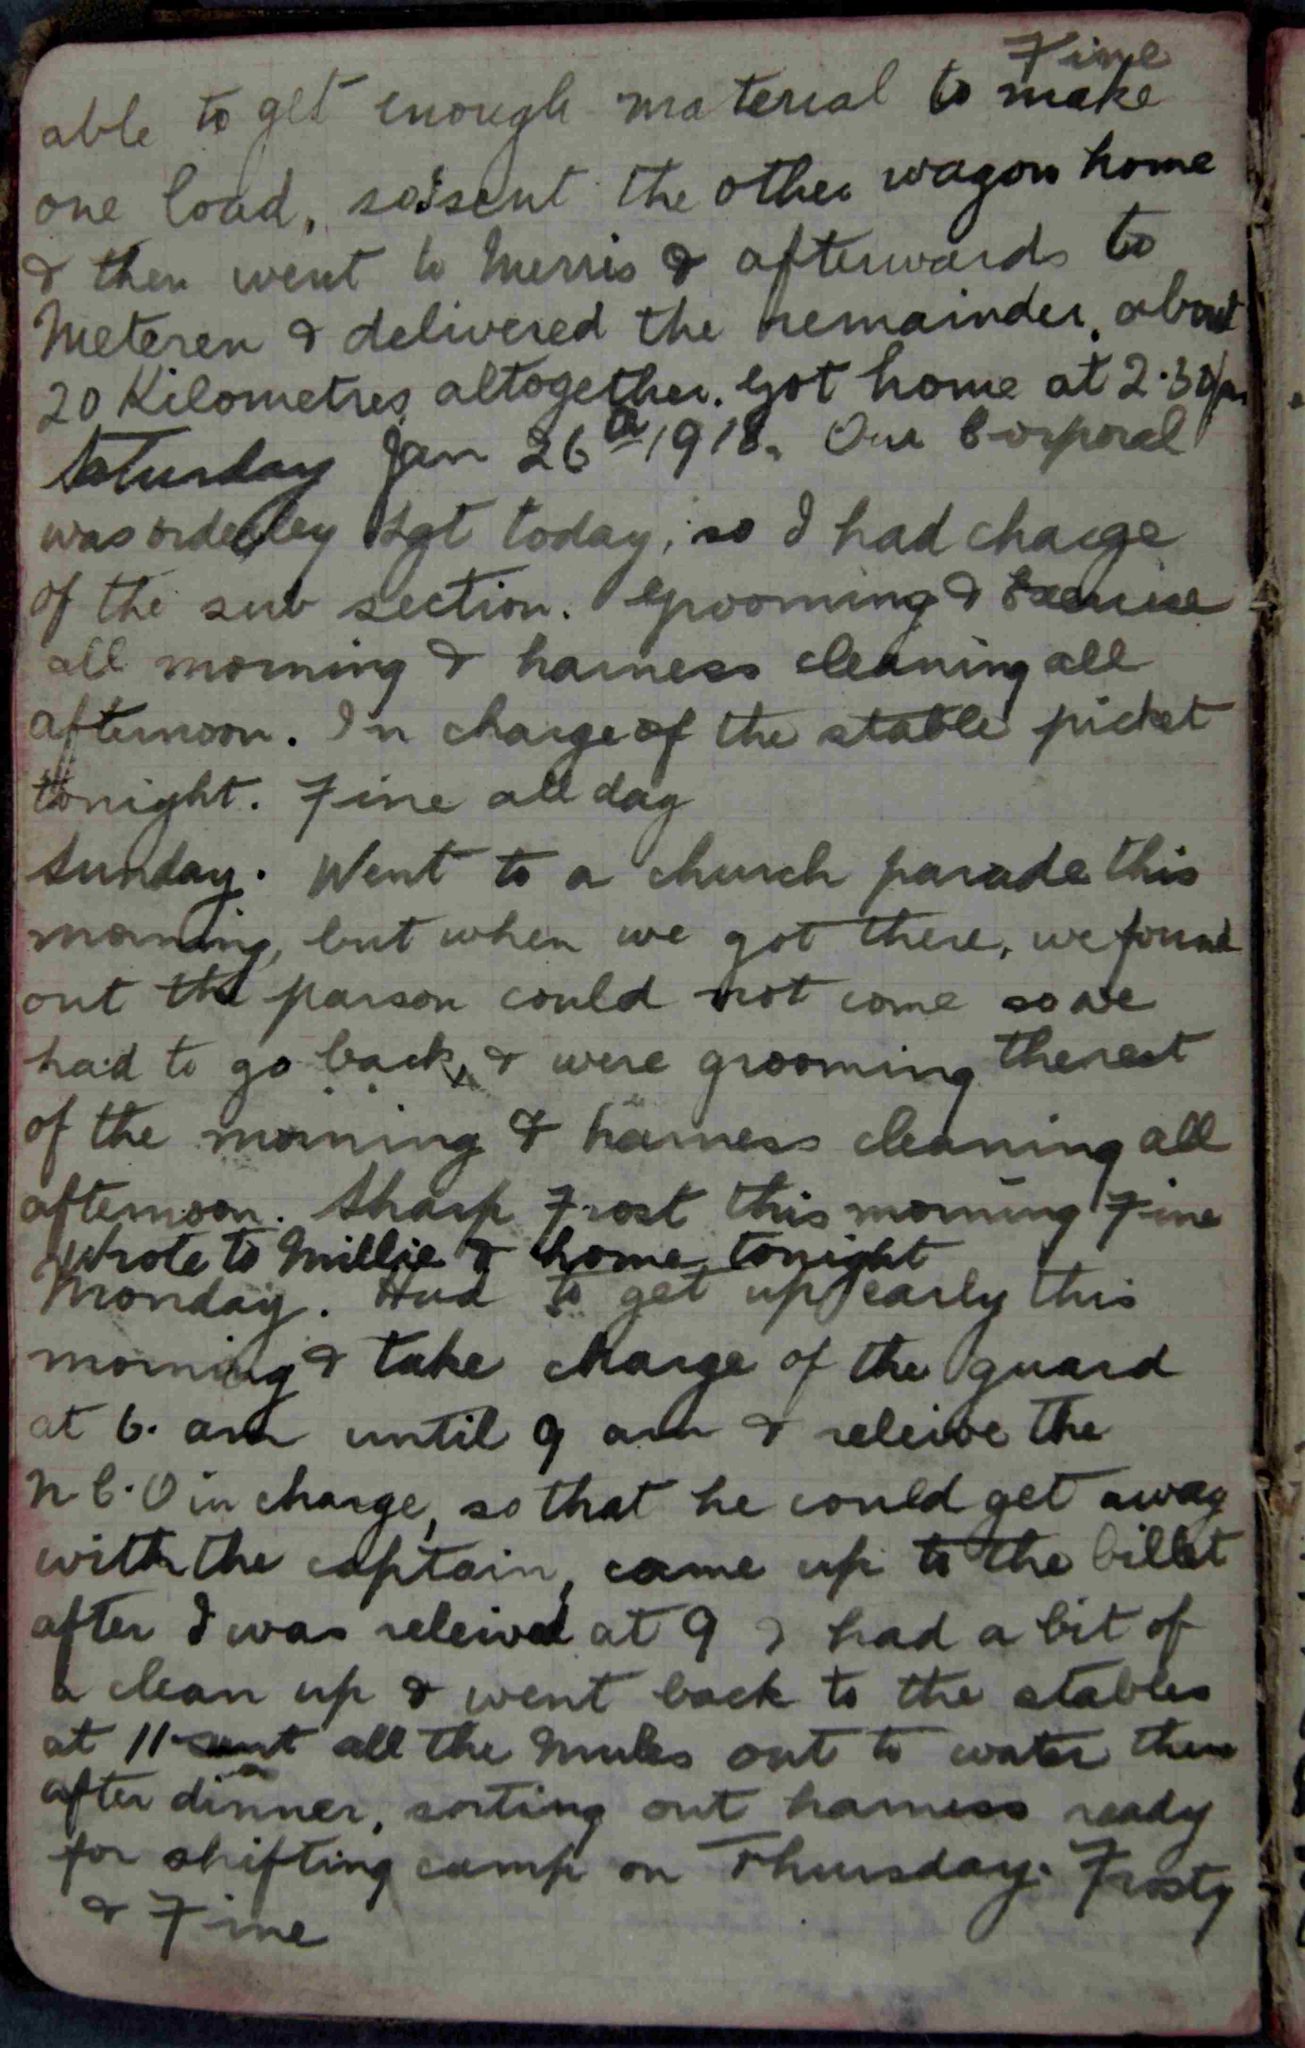 Fine
able to get enough material to make
one load, so sent the other wagon home
& then went to Merris & afterwards to
Meteren & delivered the remainder, about
20 Kilometres altogether. Got home at 2.30 pm
Saturday Jan 26th 1918. Our Corporal
was orderley Sgt today, so I had charge
of the sub section. Grooming & Exercise
all morning & harness cleaning all
afternoon. In charge of the stable picket
tonight. Fine all day
Sunday. Went to a church parade this
morning, but when we got there, we found
out the parson could not come so we
had to go back, & were grooming the rest
of the morning & harness cleaning all
afternoon. Sharp Frost this morning Fine
Wrote to Millie & home tonight
Monday. Had to get up early this
morning & take charge of the guard
at 6. am until 9 am & releive the
N.C.O in charge, so that he could get away
with the captain, came up to the billet
after I was releived at 9 & had a bit of
a clean up & went back to the stables
at 11 sent all the mules out to water then
after dinner, sorting out harness ready
for shifting camp on Thursday. Frosty
& Fine